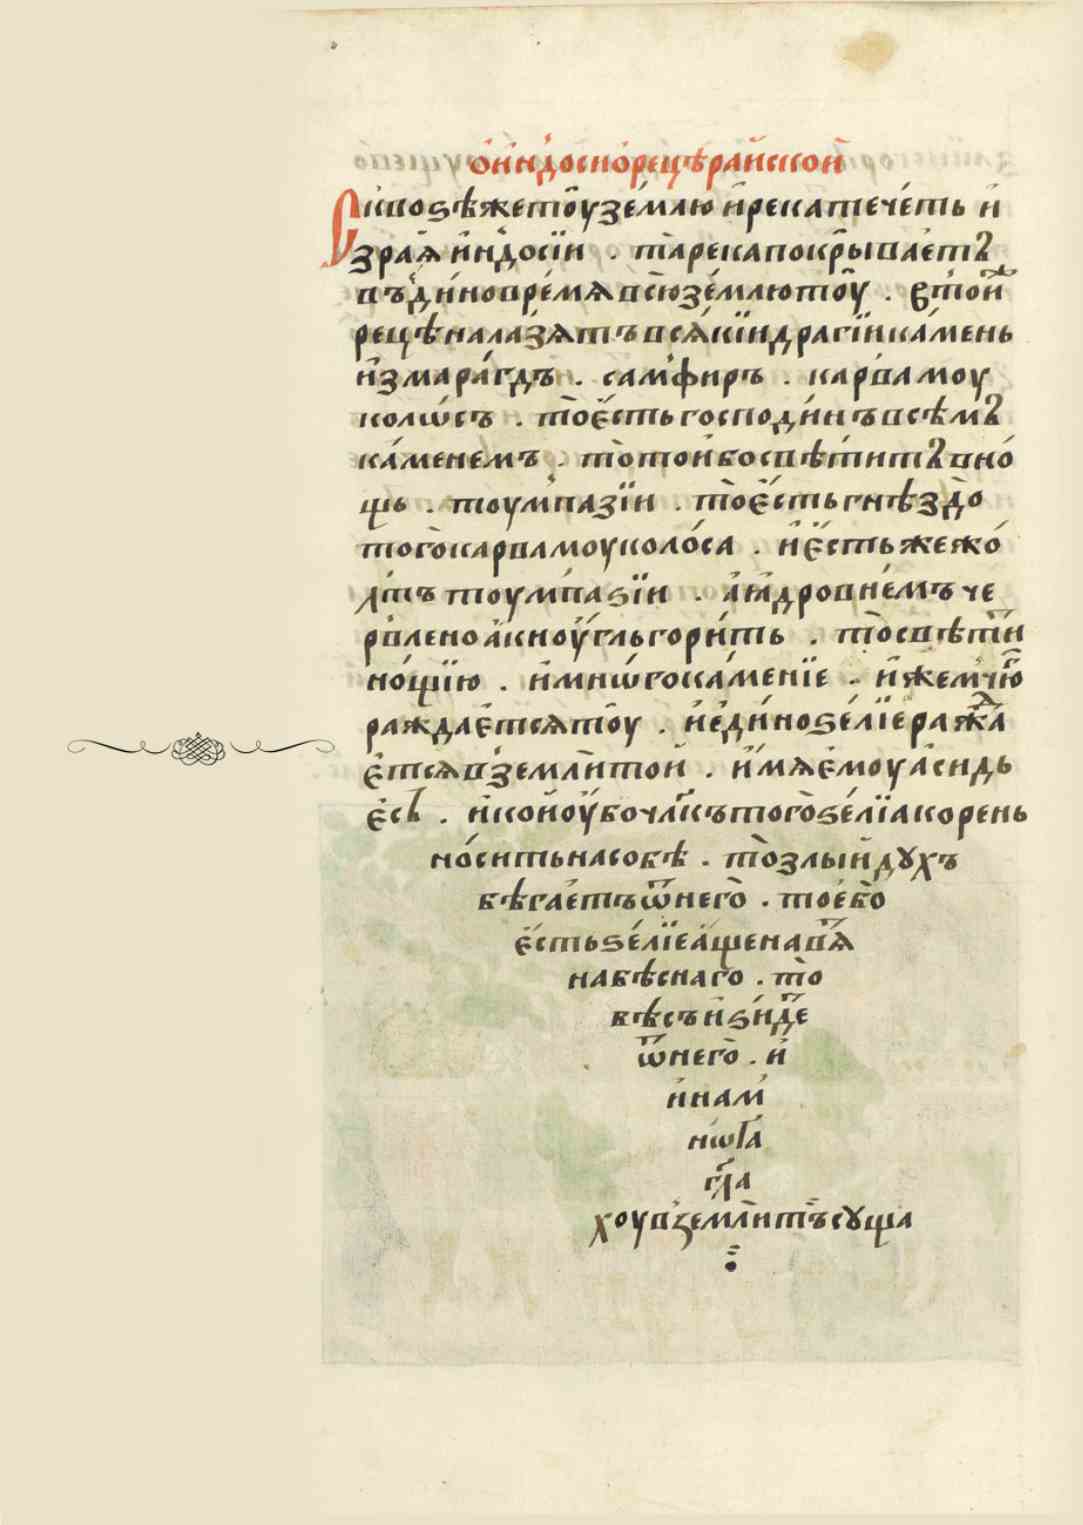 ѻ҆ и҆ндоси ѻ҆ рецѣ раискои
Сквоѕѣ же тоу зе́млю и҆ река тече́ть и
зра́ѧ и҆ндосїи . та̀ река покрыва́етъ
въ дино вре́мѧ всю̀ зе́млю тоу . в той же
рецѣ налазѧтъ всѧ́кїи драгїи ка́мень
и҆змара́гдъ . самфиръ . карвамоу
колѡсъ . то̀ є҆́сть господи́нъ всѣмъ
ка́менемъ . то̀ тои бо свѣти́тъ в но́
щь . тоумпазїи . то̀ є҆́сть гнѣздо̀
того̀ карвамоуколо́са . и҆ є҆́сть же жо́
лтъ тоумпаѕїи . а҆ ꙗ҆дро в не́мъ че
рвлено а҆ки оу҆́гль гори́ть . то̀ свѣтит
но́щїю . и҆ мнѡ́го ка́менїе . и҆ жемчюг
раждае́тсѧ тоу . и҆ еди́но ѕе́лїе ражда
є҆тсѧ в землѝ той . и҆́мѧ є҆моу а҆сидь
є҆съ . и҆ кой оу҆бо чл҃къ того̀ ѕе́лїа корень
но́сить на собѣ . то̀ злый дꙋхъ
бѣгае́тъ ѿ него̀ . тое бо̀
є҆́сть ѕе́лїе а҆́ще на
на бѣснаго . то̀
бѣсъ и҆ѕы́де
ѿ него̀ . и҆
и҆нам
нѡга
гл҃а
хоу в землѝ тѣ сꙋща